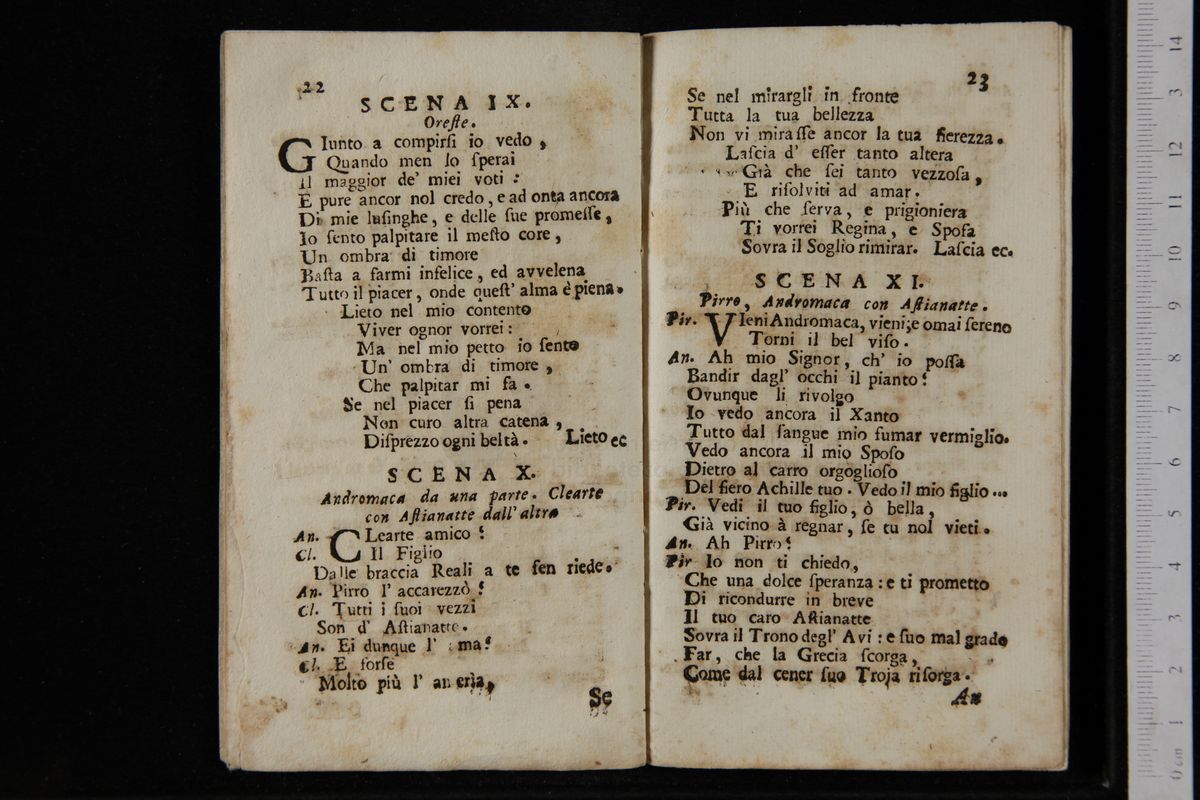 22
SCENA IX.
Oreſte.
GIunto a compirſi io vedo,
Quando men lo ſperai
Il maggior de' miei voti :
E pure ancor nol credo, e ad onta ancora
Di mie luſinghe, e delle ſue promeſſe,
Io ſento palpitare il meſto core,
Un ombra di timore
Baſta a farmi infelice, ed avvelena
Tutto il piacer, onde queſt' alma è piena.
Lieto nel mio contento
Viver ognor vorrei :
Ma nel mio petto io ſento
Un' ombra di timore,
Che palpitar mi fa.
Se nel piacer ſi pena
Non curo altra catena,
Diſprezzo ogni beltà. Lieto ec
SCENA X.
Andromaca da una parte. Clearte
con Aſtianatte dall' altra
An. CLearte amico !
Cl. Il Figlio
Dalle braccia Reali a te ſen riede.
An. Pirro l' accarezzò !
Cl. Tutti i ſuoi vezzi
Son d' Aſtianatte.
An. Ei dunque l' ama!
Cl. E forſe
Molto più l' ameria,
Se
23
Se nel mirargli in fronte
Tutta la tua bellezza
Non vi miraſſe ancor la tua fierezza.
Laſcia d' eſſer tanto altera
Già che ſei tanto vezzoſa,
E riſolviti ad amar.
Più che ſerva, e prigioniera
Ti vorrei Regina, e Spoſa
Sovra il Soglio rimirar. Laſcia ec.
SCENA XI.
Pirro, Andromaca con Aſtianatte.
Pir. VIeni Andromaca, vieni; e omai ſereno
Torni il bel viſo.
An. Ah mio Signor, ch' io poſſa
Bandir dagl' occhi il pianto!
Ovunque li rivolgo
Io vedo ancora il Xanto
Tutto dal ſangue mio fumar vermiglio.
Vedo ancora il mio Spoſo
Dietro al carro orgoglioſo
Del fiero Achille tuo. Vedo il mio figlio...
Pir. Vedi il tuo figlio, ò bella,
Già vicino à regnar, ſe tu nol vieti.
An. Ah Pirro!
Pir Io non ti chiedo,
Che una dolce ſperanza : e ti prometto
Di ricondurre in breve
Il tuo caro Aſtianatte
Sovra il Trono degl' Avi : e ſuo mal grado
Far, che la Grecia ſcorga,
Come dal cener ſuo Troja riſorga.
An
0 cm 1 2 3 4 5 6 7 8 9 10 11 12 3 14